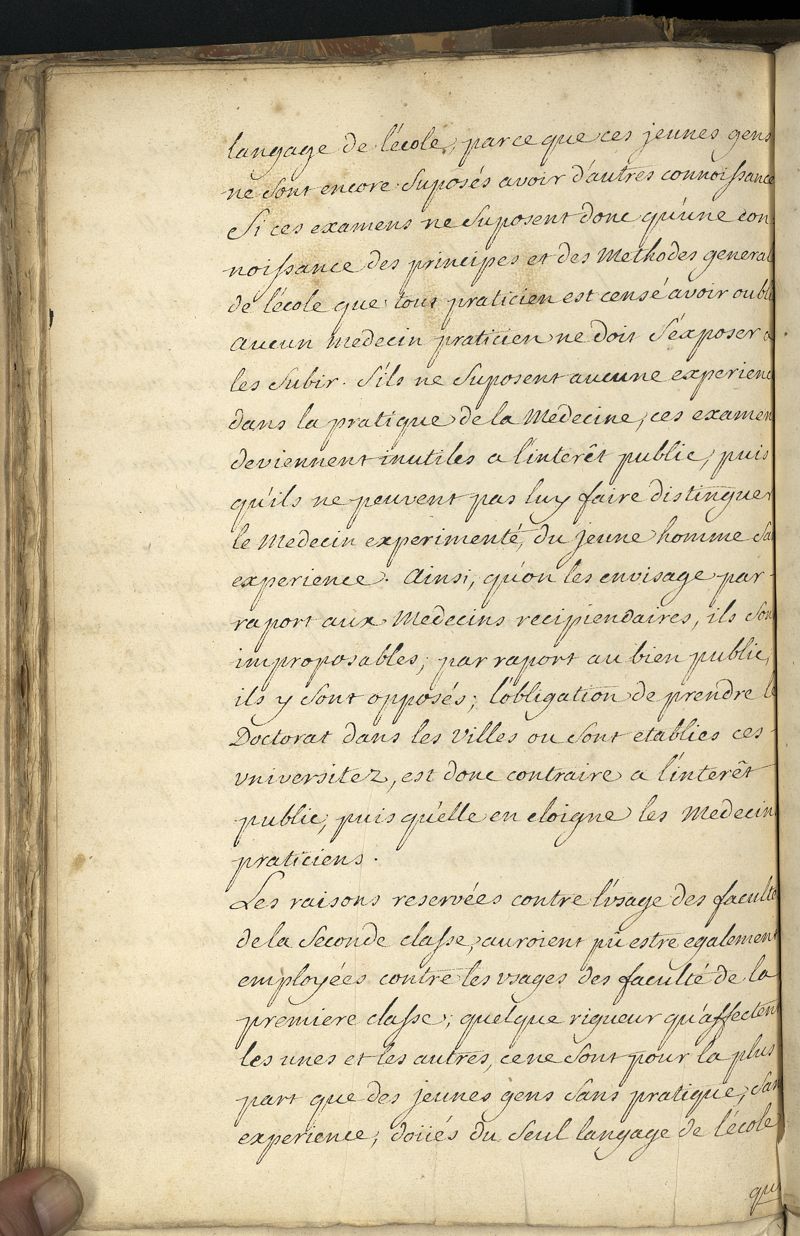 langage de l'école, parce que ces jeunes gens
ne sont encore suposés avoir d'autres connoissance
Si ces examens ne suposent donc qu'une con
noissance des principes et des Methodes general
de l'école que tout praticien est censé avoir oubli
aucun medecin praticien ne doit s'éxposer a
les subir. s'ils ne suposent aucune experienc
dans la pratique de la Médecine, ces examen
deviennent inutiles a l'interêt public, puis
qu'ils ne peuvent pas luy faire distinguer
le Medecin experimenté, du jeune homme sa
experience. Ainsi, qu'on les envisage par-
raport aux Medecins recipiendaires, ils son
improposables; par raport au bien public,
ils y sont opposés; l'obligation de prendre le
Doctorat dans les Villes ou sont etablies ces
vniversitez, est donc contraire a l'interêt
public, puis qu'elle en eloigne les Medecin
praticiens.
Les raisons reservées contre l'vsage des faculté
de la seconde classe, auroient pû estre egalement
employées contre les vsages des faculté de la
premiere classe; quelque rigueur qu'affectent
les unes et les autres, ce ne sont pour la plus
part que des jeunes gens sans pratique, san
experience, doüés du seul langage de l'école
qu